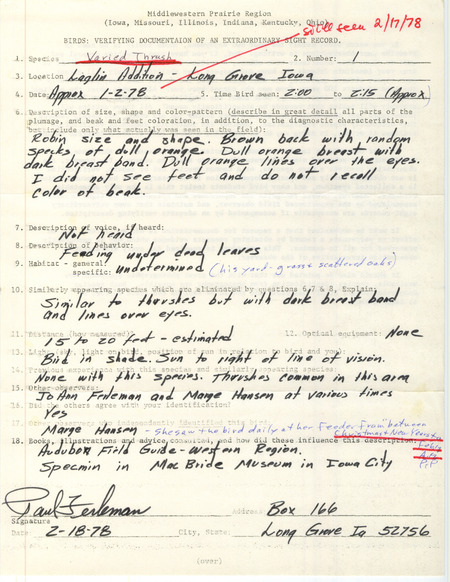 Middlewestern Prairie Region
(Iowa, Missouri, Illinois, Indiana, Kentucky, Ohio)
still seen 2/17/78
BIRDS: VERIFYING DOCUMENTAION OF AN EXTRAORDINARY SIGHT RECORD.
1. Species Varied Thrush 2. Number: 1
3. Location Laglin Addition - Long Grove Iowa
4. Date: Approx 1-2-78 5. Time Bird seen: 2:00 to 2:15 (Approx)
6. Description of size, shape and color-pattern (describe in great detail all parts of the
plumage, and beak and feet coloration, in addition, to the diagnostic characteristics,
but include only what actually was seen in the field):
Robin size and shape. Brown back with random
specks of dull orange. Dull orange breast with
dark breast band. Dull orange lines over the eyes.
I did not see feet and do not recall
color of beak.
7. Description of voice, if heard:
Not heard
8. Description of behavior:
Feeding under dead leaves
9. Habitat - general:
specific: undetermined (his yard - grass & scattered oaks)
10. Similarly appearing species which are eliminated by questions 6, 7 & 8, Explain:
Similar to thrushes but with dark breast band
and lines over eyes.
11. Distance (how measured)? 12. Optical equipment: None
15 to 20 feet - estimated
13. Light (sky, light on bird, position of sun in relation to bird and you):
Bird in shade. Sun to right of line of vision.
14. Previous experience with this species and similarly appearing species:
None with this species. Thrushes common in this area
15. Other observers:
Jo Ann Ferleman and Marge Hansen at various times
16. Did the others agree with your identification?
Yes
17. Other observers who independently identified this bird:
Marge Hansen - She saw the bird daily at her feeder from between
Christmas & New Years to
18. Books, illustrations and advice consulted, and how did these influence this description:
Audubon Field Guide - Western Region.
Specmin in MacBride Museum in Iowa City
Paul Ferleman Address: Box 166
Signature
Date: 2-18-78 City, State: Long Grove Ia 52756
(over)